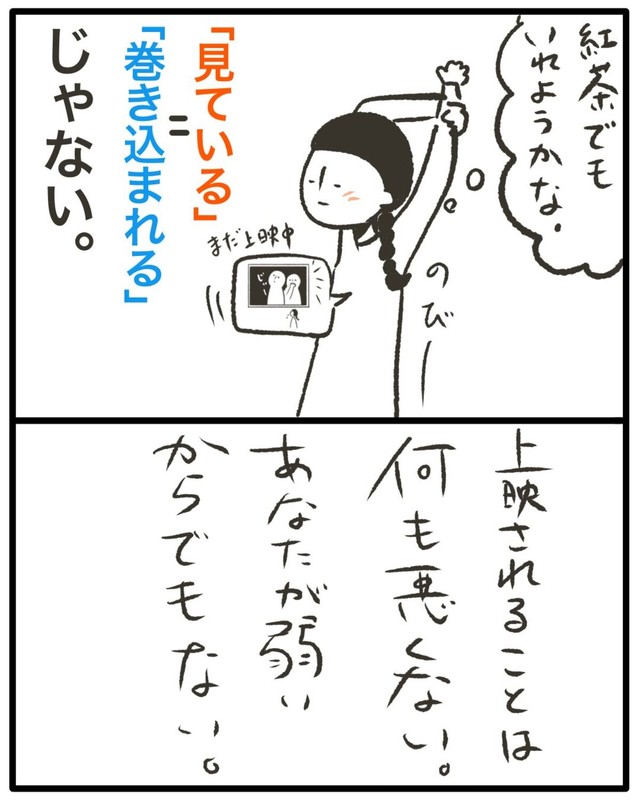 紅茶でも
いれようかな.
のびー
「見ている」
=
「巻き込まれる」
じゃない。
まだ上映中
上映されることは
何も悪くない。
あなたが弱い
からでもない。